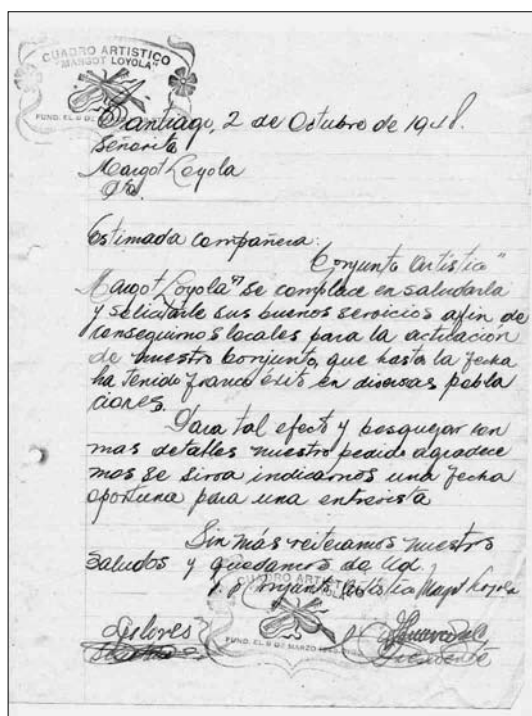 CUADRO ARTISTICO
"MARGOT LOYOLA"
FUND. EL 8 DE
Santiago, 2 de Octubre de 1948.
Señorita
Margot Loyola
Estimada compañera:
Conjunto Artistico "
Margot Loyola" se complace en saludarla
y solicitarle sus buenos servicios afin de
conseguirnos locales para la actuación
de nuestro conjunto, que hasta la fecha
ha tenido franco éxito en diversas pobla
ciones.
Para tal efecto y bosquejar con
mas detalles nuestro pedido agradece
mos se sirva indicarnos una fecha
oportuna para una entrevista
Sin más reiteramos nuestro
saludos y quedamos de Ud.
CUADRO ARTISTICO
LOYOLA
Conjunto Artística Margot Loyola
FUND. EL 8 DE MARZO
Dolores
Presidente